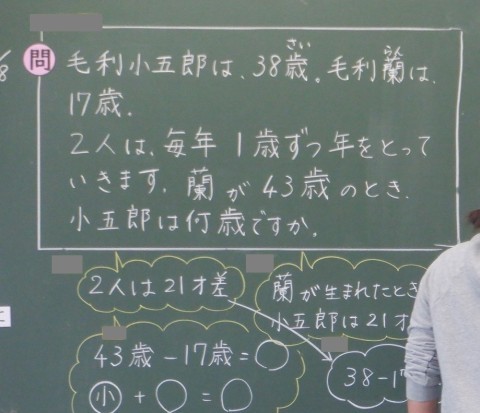 問 毛利小五郎は、38歳。毛利蘭は、
さい
らん
17歳.
2人は、毎年 1歳ずつ年をとって
いきます. 蘭が 43歳 のとき.
小五郎は何歳ですか.
2人は21才差
蘭が生まれたとき
小五郎は21才
43歳-17歳=○
小+○=○
38-17